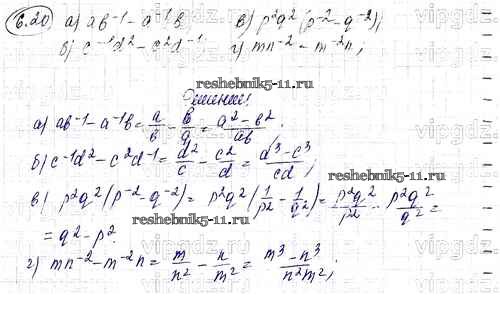 6.20 а) ab⁻¹ - a⁻¹b; в) p²q²(p⁻² - q⁻²);
б) c⁻¹d² - c²d⁻¹; г) mn⁻² - m⁻²n;
reshebnik5-11.ru
Решение:
а) ab⁻¹ - a⁻¹b = a/b - b/a = (a² - b²)/ab;
reshebnik5-11.ru
б) c⁻¹d² - c²d⁻¹ = d²/c - c²/d = (d³ - c³)/cd;
в) p²q²(p⁻² - q⁻²) = p²q²(1/p² - 1/q²) = p²q²/p² - p²q²/q² =
reshebnik5-11.ru
= q² - p².
г) mn⁻² - m⁻²n = m/n² - n/m² = (m³ - n³)/n²m²;
vipgdz